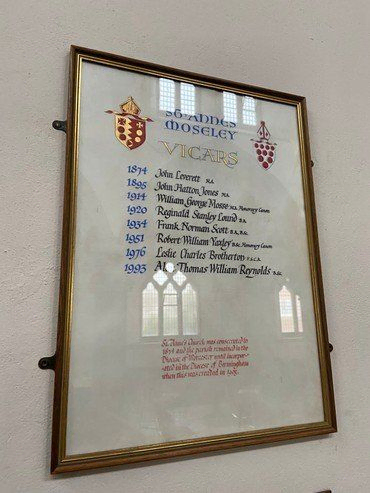 St. ANNES
MOSELEY
VICARS
1874 John Leverett M.A.
1895 John Hatton Jones M.A.
1914 William George Mosse M.A. Honorary Canon
1920 Reginald Stanley Lound B.A.
1934 Frank Norman Scott B.A., B.C.
1951 Robert William Yaxley B.Sc. Honorary Canon
1976 Leslie Charles Brotherton
1993 Thomas William Reynolds B.Sc.
St. Anne's Church was consecrated in
1874 and the parish remained in the
Diocese of Worcester until incorpor-
ated in the Diocese of Birmingham
when this was created in 1905.